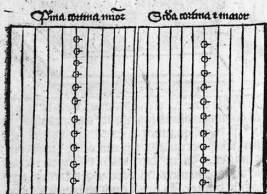 Pma cortina miõr Scđa cortina ⁊ maior